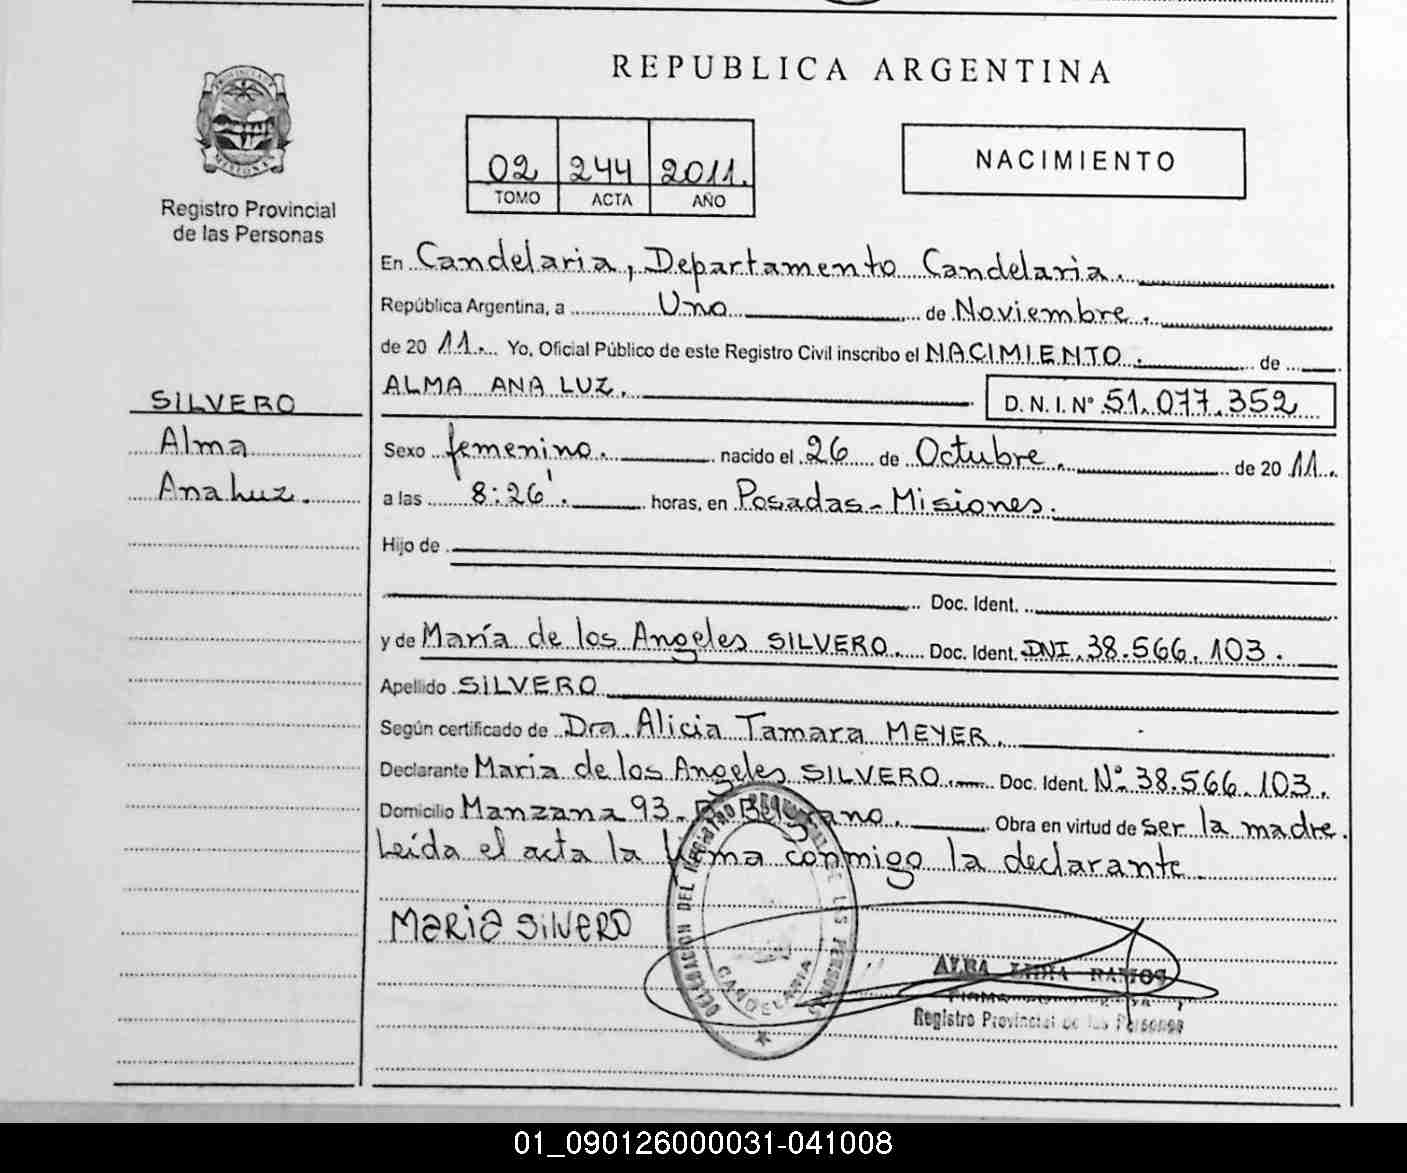 REPUBLICA ARGENTINA
PROVINCIA DE
MISIONES
Registro Provincial
de las Personas
02 244 2011.
TOMO ACTA AÑO
NACIMIENTO
SILVERO
Alma
Ana Luz.
En Candelaria, Departamento Candelaria.
República Argentina, a Uno de Noviembre.
de 2011. Yo, Oficial Público de este Registro Civil inscribo el NACIMIENTO. de
ALMA ANA LUZ.
D. N. I. N° 51.077.352
Sexo femenino. nacido el 26 de Octubre. de 2011.
a las 8:26'. horas, en Posadas - Misiones.
Hijo de
Doc. Ident.
y de María de los Angeles SILVERO. Doc. Ident. DNI. 38.566.103.
Apellido SILVERO
Según certificado de Dra. Alicia Tamara MEYER.
Declarante Maria de los Angeles SILVERO. Doc. Ident. N° 38.566.103.
Domicilio Manzana 93 - B° Belgrano. Obra en virtud de ser la madre.
Leída el acta la firma conmigo la declarante.
MARIA SILVERO
DELEGACION DEL REGISTRO DE LAS PERSONAS
CANDELARIA
RAMOS
Registro Provincial de las Personas
01_090126000031-041008